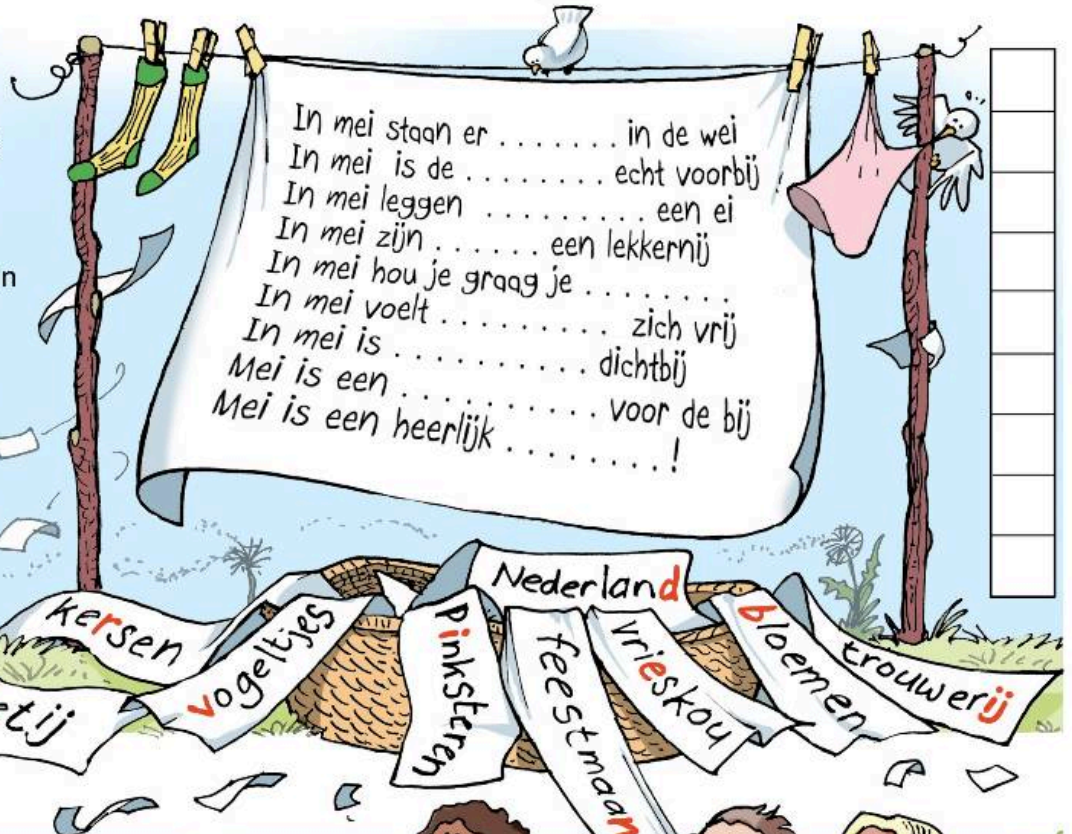 n
In mei staan er ........ in de wei
In mei is de ......... echt voorbij
In mei leggen .......... een ei
In mei zijn ....... een lekkernij
In mei hou je graag je ........
In mei voelt .......... zich vrij
In mei is .......... dichtbij
Mei is een ............ voor de bij
Mei is een heerlijk ........!
Nederland
kersen
vogeltjes
Pinksteren
feestmaan
vrieskou
bloemen
trouwerij
etij